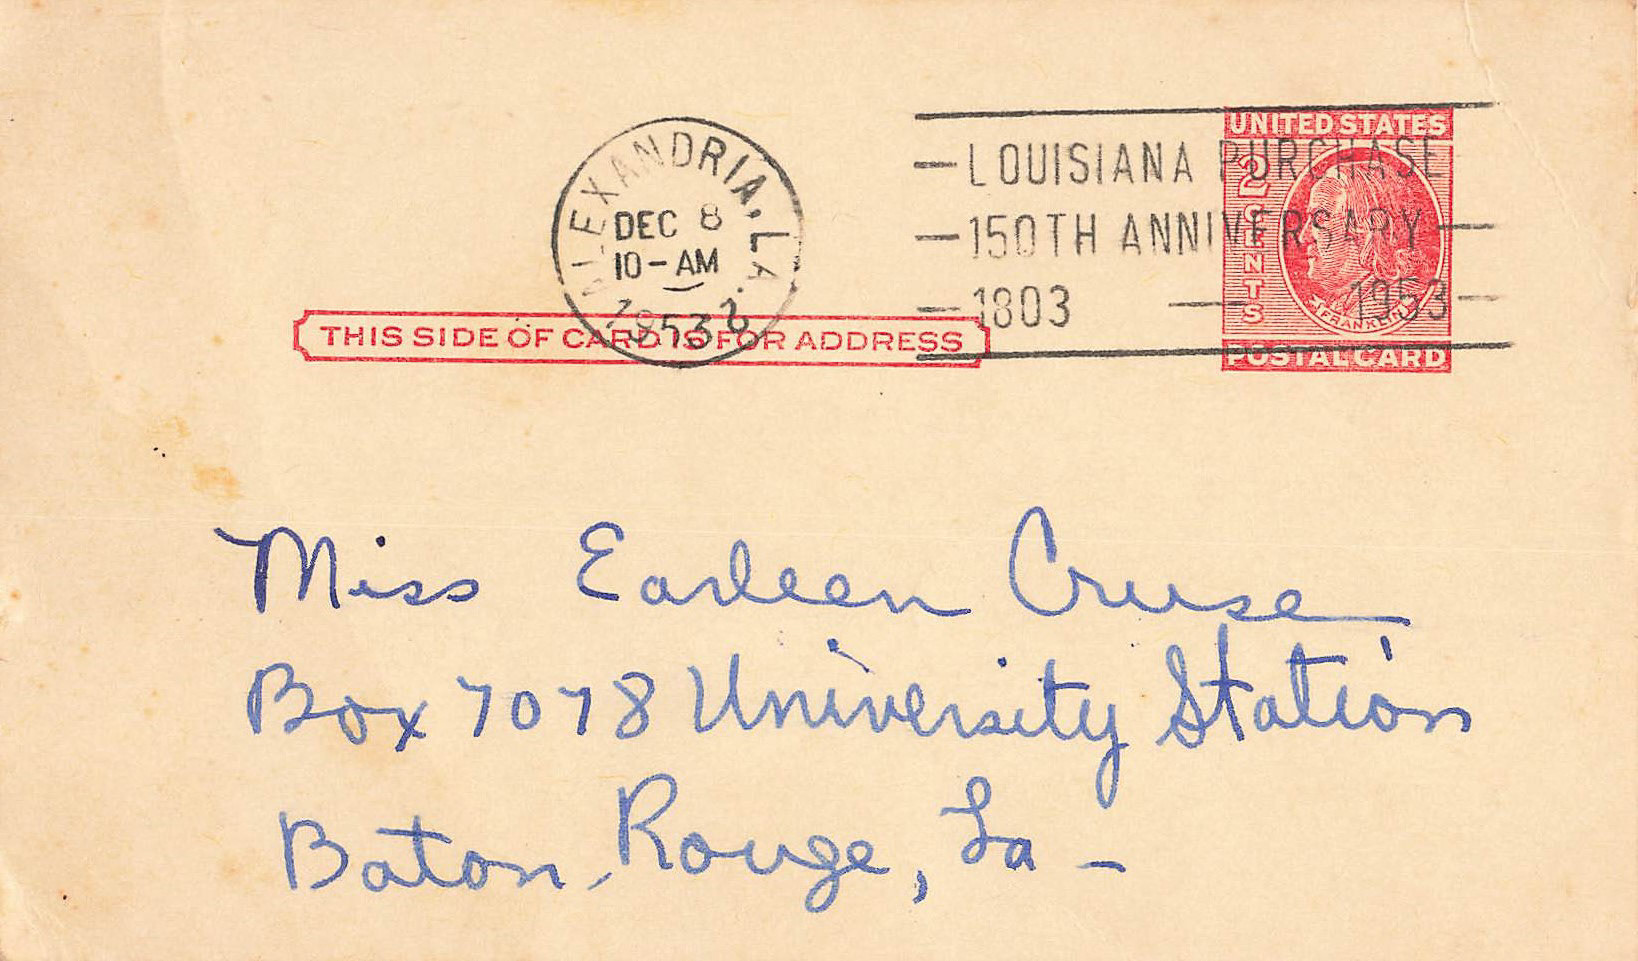 ALEXANDRIA, LA.
DEC 8
10-AM
1953
LOUISIANA PURCHASE
150TH ANNIVERSARY
1803 — 1953
UNITED STATES
2 CENTS
FRANKLIN
POSTAL CARD
THIS SIDE OF CARD IS FOR ADDRESS
Miss Earleen Cruse
Box 7078 University Station
Baton Rouge, La -